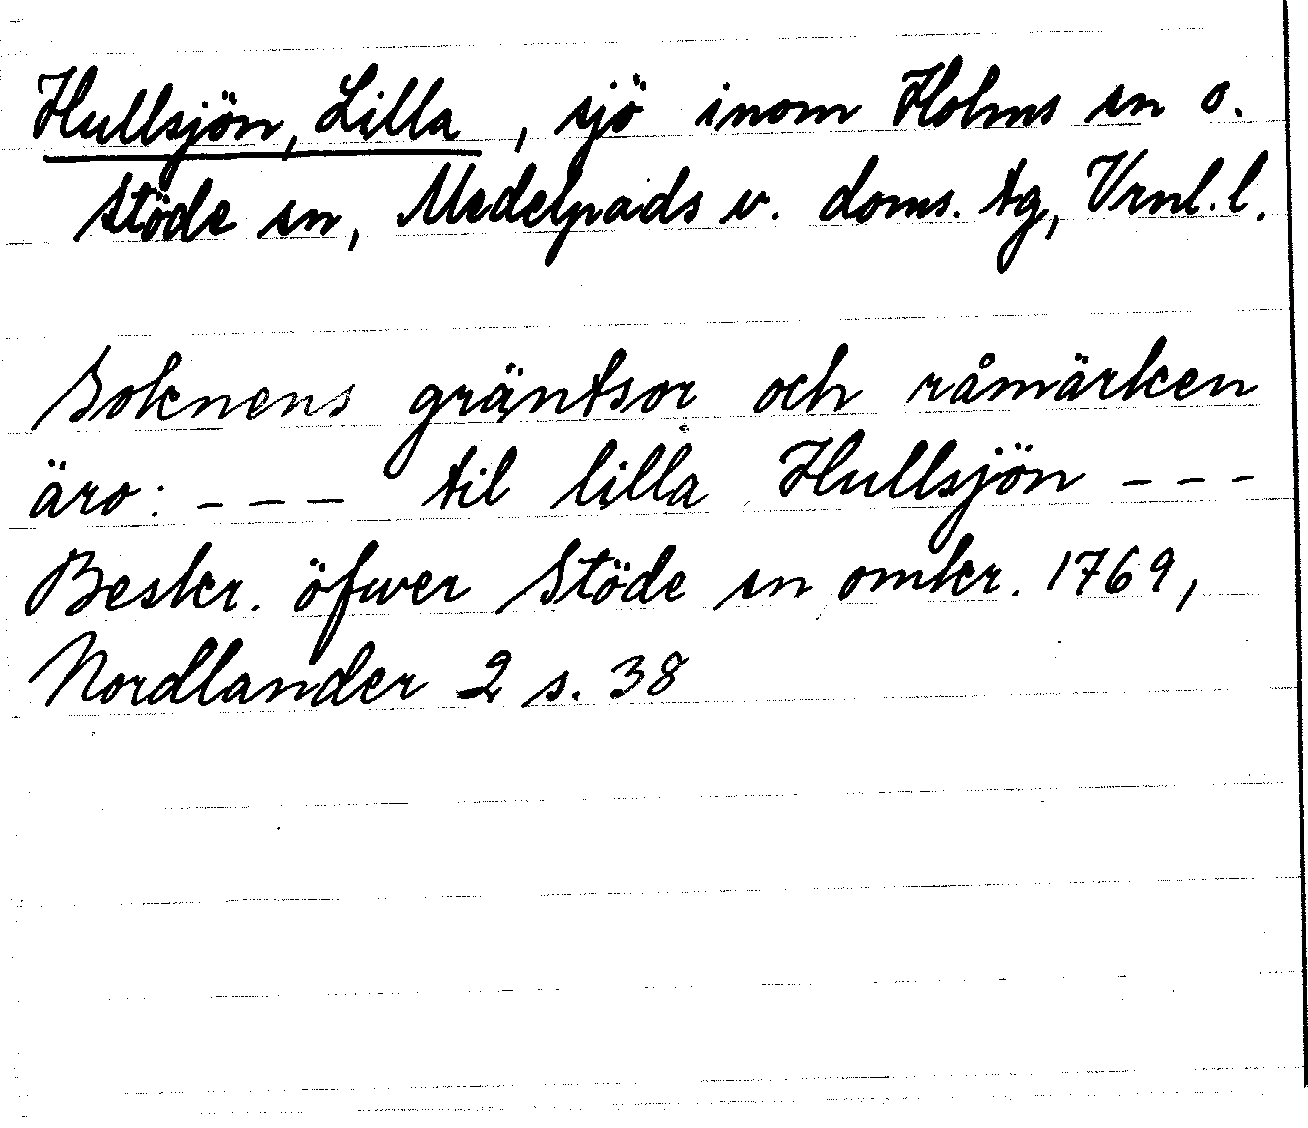 Hullsjön, Lilla, sjö inom Holms sn o.
Stöde sn, Medelpads v. doms. tg, Vrnl. l.
Soknens gräntsor och råmärken
äro: - - - til lilla Hullsjön - - -
Beskr. öfwer Stöde sn omkr. 1769,
Nordlander 2 s. 38